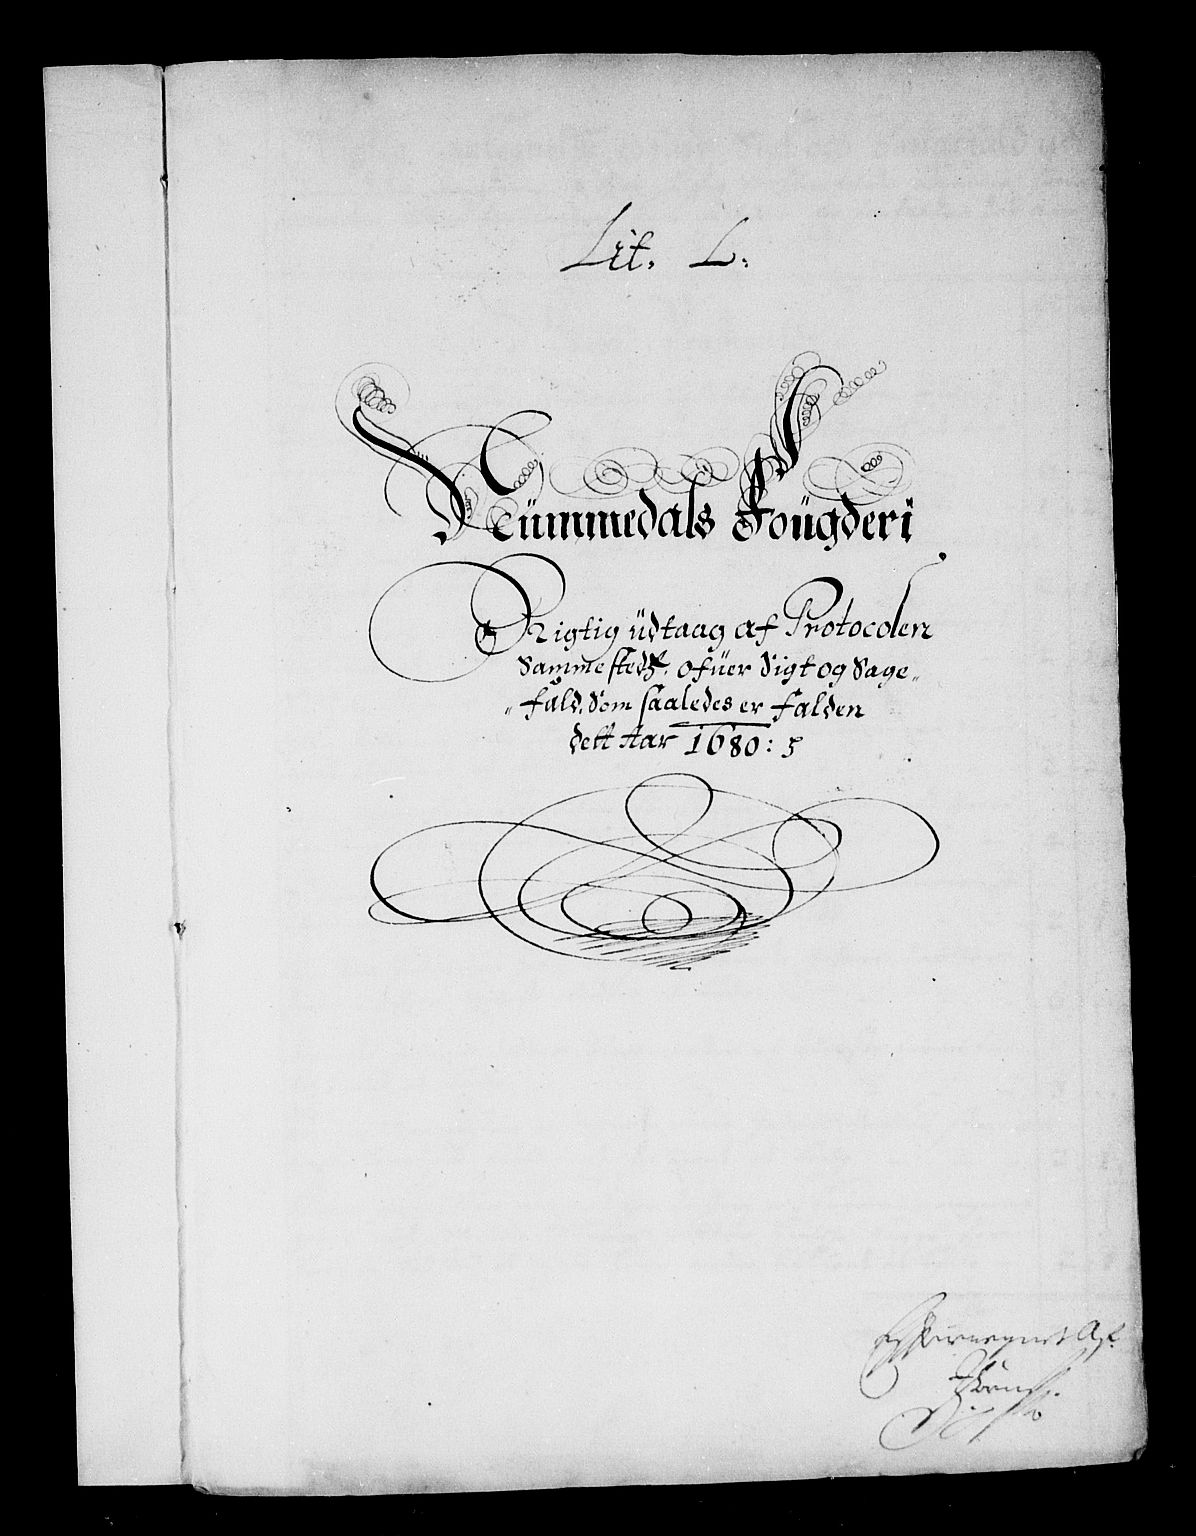 Lit. L.
Nümmedals Foügderi
Rigtig üdtaag af Protocolen
Sammesteds, ofüer Sigt og Sage„
„fald, Som saaledes er falden
dett Aar 1680: